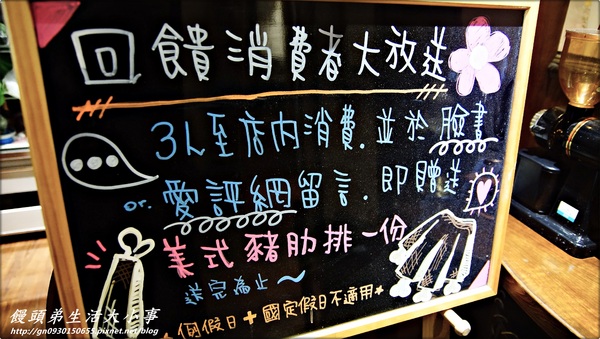 回饋消費者大放送
3人至店內消費.並於臉書
or.愛評網留言.即贈送
美式豬肋排一份
送完為止~
例假日+國定假日不適用★
饅頭弟生活大小事
http://gn0930150655.pixnet.net/blog